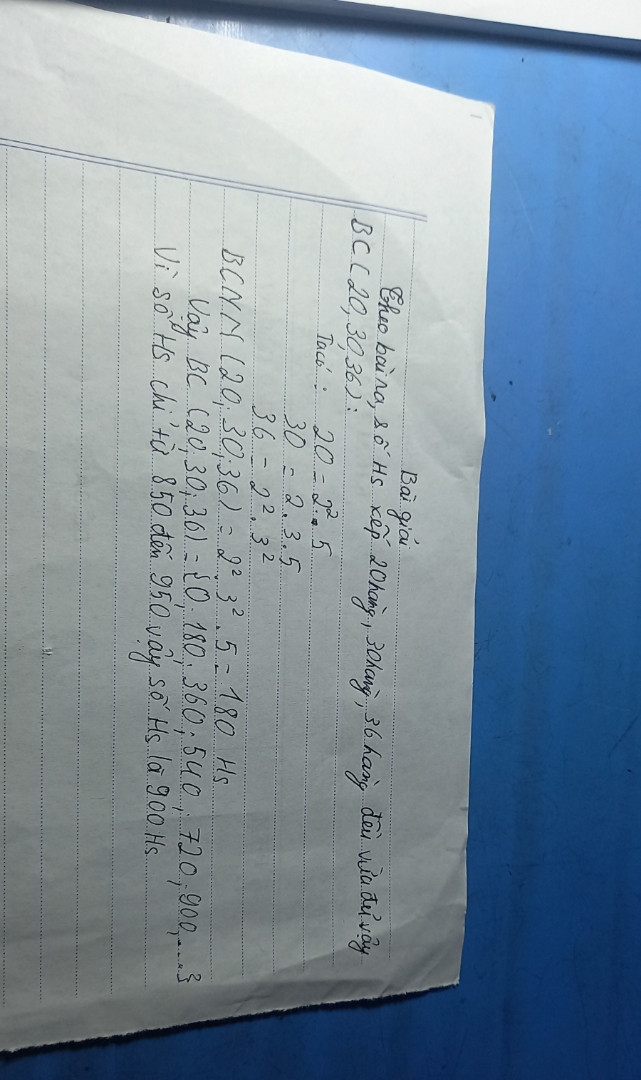 Bài giải
Theo bài ra, số Hs xếp 20 hàng, 30 hàng, 36 hàng đều vừa đủ vậy
BC (20, 30, 36):
Ta có: 20 = 2². 5
30 = 2. 3. 5
36 = 2². 3²
BCNN (20. 30, 36) = 2². 3². 5 = 180 Hs
Vậy BC (20, 30, 36) = {0. 180. 360. 540; 720. 900, ....}
Vì số Hs chỉ từ 850 đến 950 vậy số Hs là 900 Hs